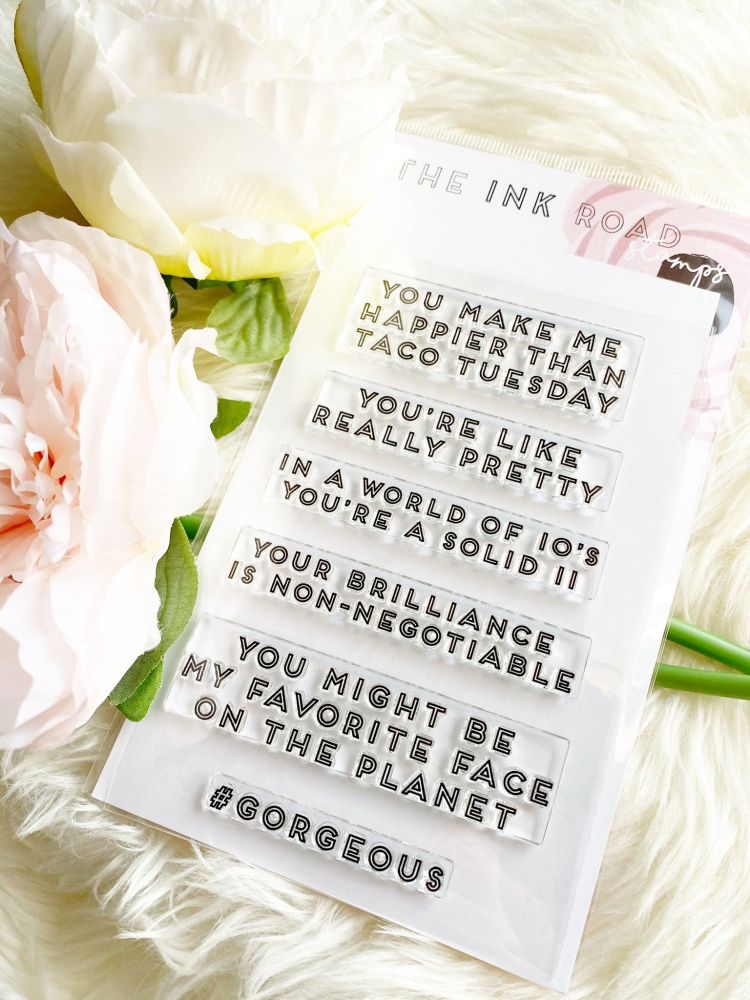 THE INK ROAD
stamps
YOU MAKE ME
HAPPIER THAN
TACO TUESDAY
YOU'RE LIKE
REALLY PRETTY
IN A WORLD OF 10'S
YOU'RE A SOLID 11
YOUR BRILLIANCE
IS NON-NEGOTIABLE
YOU MIGHT BE
MY FAVORITE FACE
ON THE PLANET
#GORGEOUS